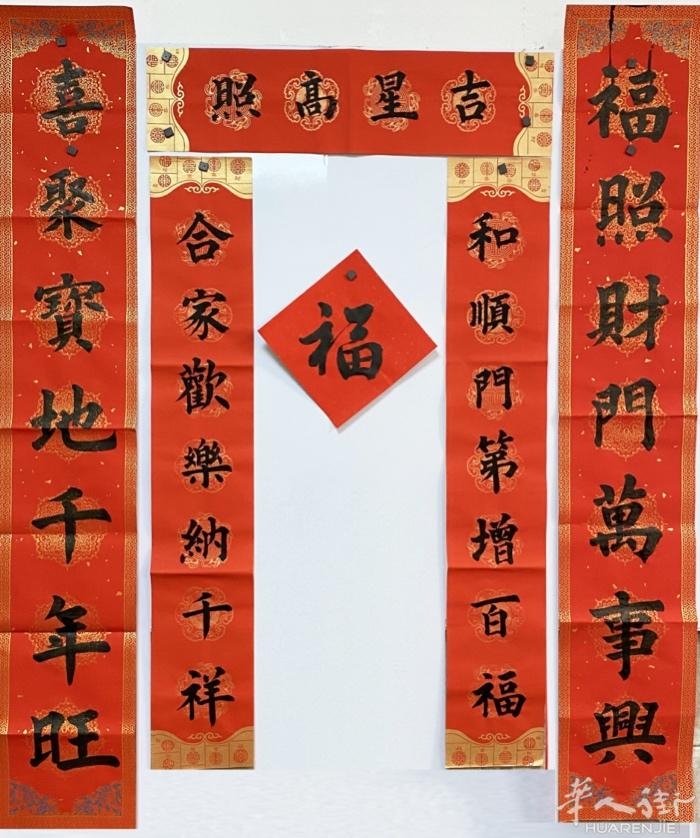 吉星高照
福照財門萬事興
喜聚寶地千年旺
和順門第增百福
合家歡樂納千祥
福
華人街
HUARENJIE